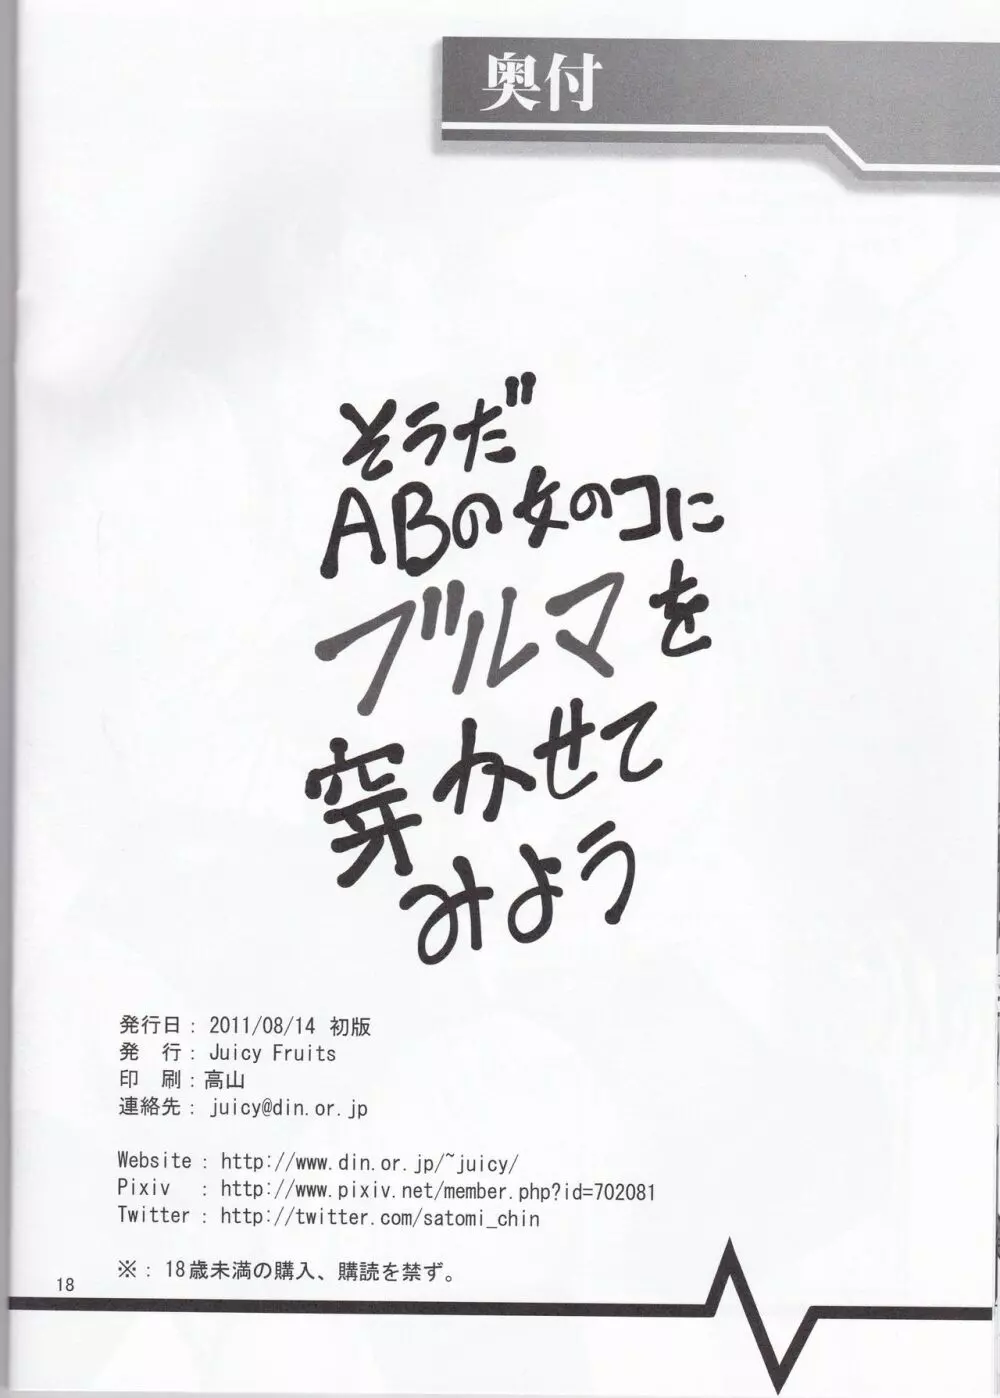 奥付
そうだ
ABの女のコに
ブルマを
穿かせて
みよう
発行日： 2011/08/14 初版
発　行： Juicy Fruits
印　刷：高山
連絡先： juicy@din.or.jp
Website : http://www.din.or.jp/~juicy/
Pixiv : http://www.pixiv.net/member.php?id=702081
Twitter : http://twitter.com/satomi_chin
※： 18歳未満の購入、購読を禁ず。
18